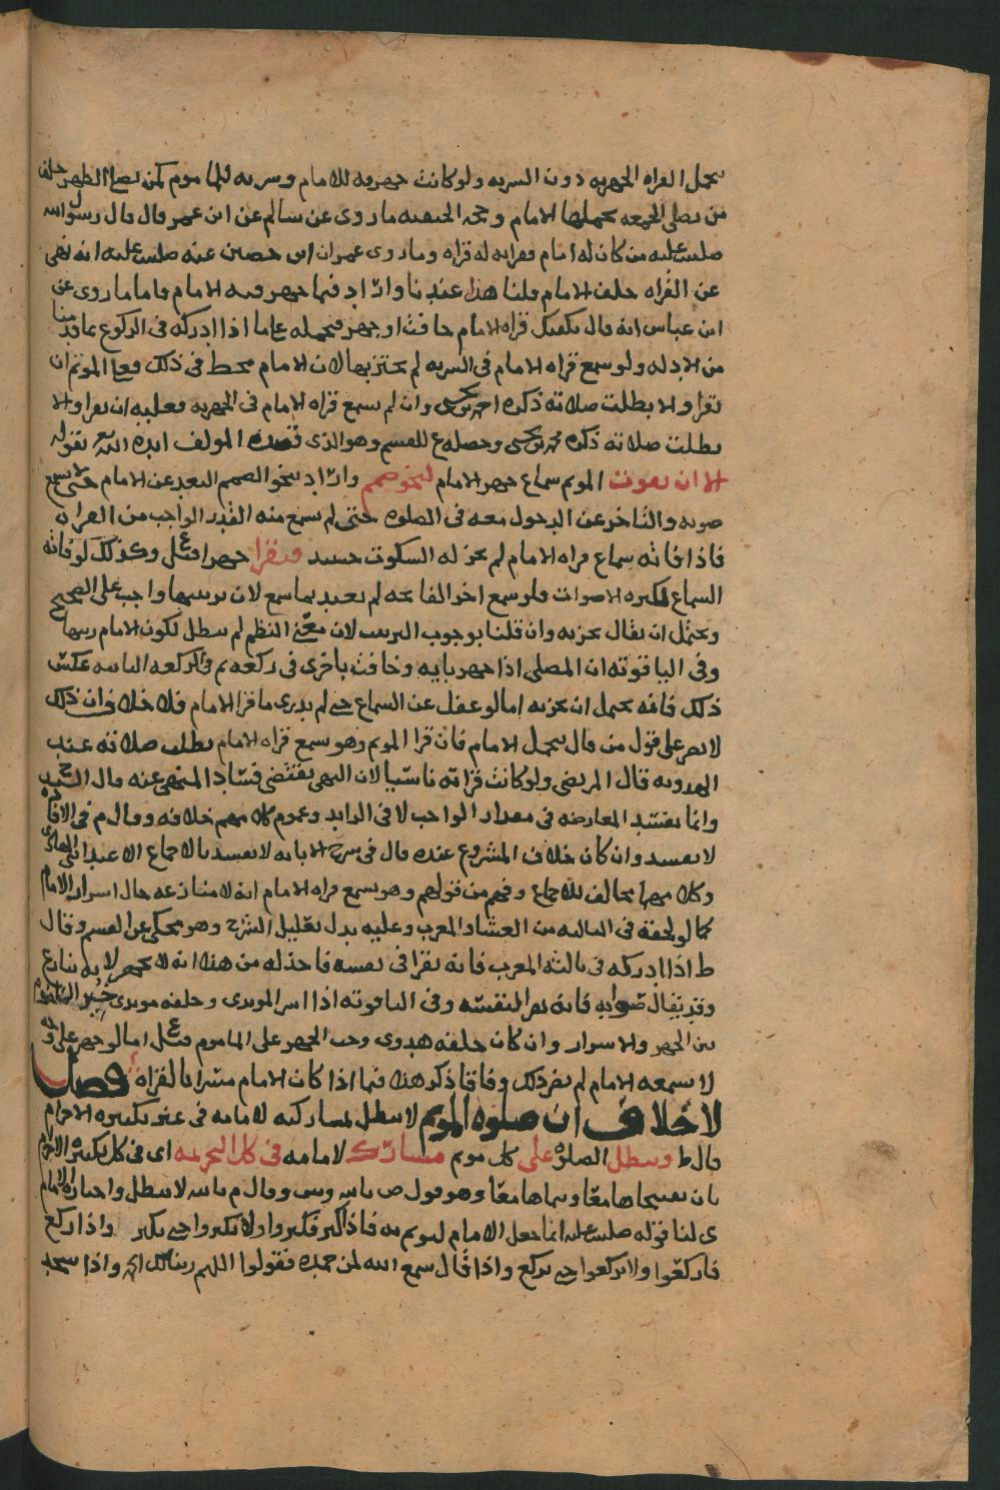 يحمل القراه الجهريه دون السريه ولو كانت جهريه للامام وسريه للماموم كمن يصلي الظهر خلف
من يصلي الجمعه يحملها الامام وحجه الحنفيه ما روى عن سالم عن ابن عمر قال قال رسول الله
صلى الله عليه من كان له امام فقرايه له قراه وما روى عمران ابن حصين عنه صلى الله عليه انه نهى
عن القراه خلف الامام قلنا هذا عندنا واراد فيما جهر فيه الامام واما ما روى عن
ابن عباس انه قال يكفيك قراه الامام خافت او جهر فيحمله على ما اذا ادركه في الركوع بما قدمنا
من الادله ولو سمع قراه الامام في السريه لم يعتد بها لان الامام مخط في ذلك وعلى الموتم ان
يقرا والا بطلت صلاته ذكره وان لم يسمع قراه الامام في الجهريه فعليه ان يقرا والا
بطلت صلاته ذكره وحصله ع للقسم وهو الذي قصده المولف ايده الله بقوله
الا ان يفوت الموتم سماع جهر الامام لنحو صمم واراد بنحو الصمم البعد عن الامام حتى لا يسمع
صوته والتاخر عن الدخول معه في الصلوه حتى لم يسمع منه القدر الواجب من القران
فاذا فاته سماع قراه الامام لم يجز له السكوت حينيذ فيقرا جهرا وكذلك لو فاته
السماع لكثره الاصوات فلو سمع اخر الفاتحه لم يعتد بما سمع لان ترتيبها واجب على الصحيح
ويحتمل ان يقال يجزيه وان قلنا بوجوب الترتيب لان معنى النظم لم يبطل لكون الامام رتبها
وفي الياقوته ان المصلي اذا جهر بايه وخافت باخرى في ركعه ثم في الركعه الثانيه عكس
ذلك فانه يحتمل ان يجزيه اما لو غفل عن السماع حتى لم يدر ما قرا الامام فلا خلاف ان ذلك
لا يضر على قول من قال يحمل الامام فان قرا الموتم وهو يسمع قراه الامام بطلت صلاته عند
الهدويه قال المرتضى ولو كانت قراته ناسيا لان النهي يقتضي فساد المنهي عنه قال
وانما تفسد المعارضه في مقدار الواجب لا في الزايد وعموم كلامهم خلافه وقال م في الافاده
لا تفسد وان كان خلاف المشروع عنده قال في شرح الابانه لا تفسد بالاجماع الا عند الهادي
وكلامهما يخالف للاجماع وفهم من قولهم وهو يسمع قراه الامام انه لا منازعه حال اسرار الامام
كما لو لحقه في الثالثه من العشا والمغرب وعليه يدل تعليل الشرح وهو محكي عن القسم وقال
ط اذا ادركه في ثالثه المغرب فانه يقرا في نفسه فاخذ له من هذا انه لا يجهر لا ينازع
وقد يقال صوابه فانه يقرا لنفسه وفي الياقوته اذا اسر المويدي وخلفه مويدي خير الماموم
بين الجهر والاسرار وان كان خلفه هدوي وجب الجهر على الماموم اما لو جهر على وجه
لا يسمعه الامام لم يضر ذلك وفاقا ذكر هذا فيما اذا كان الامام مسرا بالقراه فصل
لا خلاف ان صلوه الموتم لا تبطل بمشاركته لامامه في غير تكبيره الاحرام
قال ط وتبطل الصلوه على كل موتم مشارك لامامه في كل التحريمه اي في كل تكبيره الاحرام
بان يفتتحاها معا ويتماها معا وهو قول ص بالله وش وقال م بالله لا تبطل واختاره الامام
ى لنا قوله صلى الله عليه انما جعل الامام ليوتم به فاذا كبر فكبروا ولا تكبروا حتى يكبر واذا ركع
فاركعوا ولا تركعوا حتى يركع واذا قال سمع الله لمن حمده فقولوا اللهم ربنا لك الحمد واذا سجد